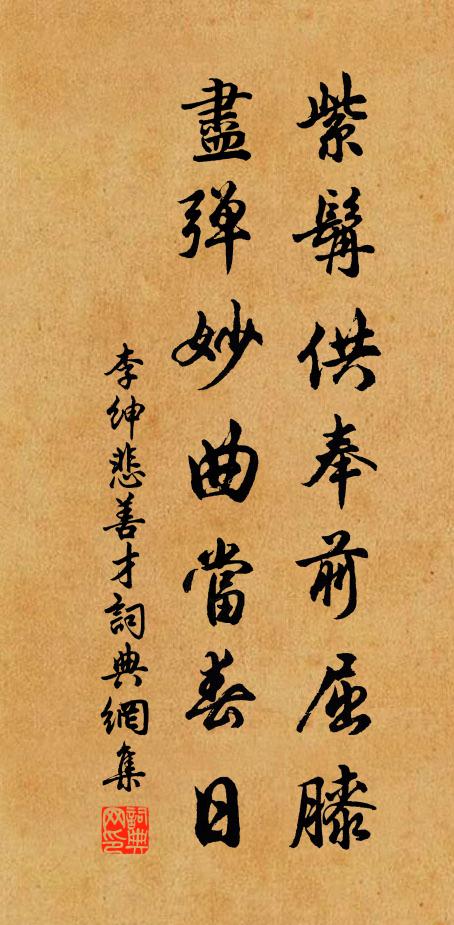 紫髯供奉前屈膝
盡弹妙曲當春日
李紳悲善才詞典網集
詞典
网印